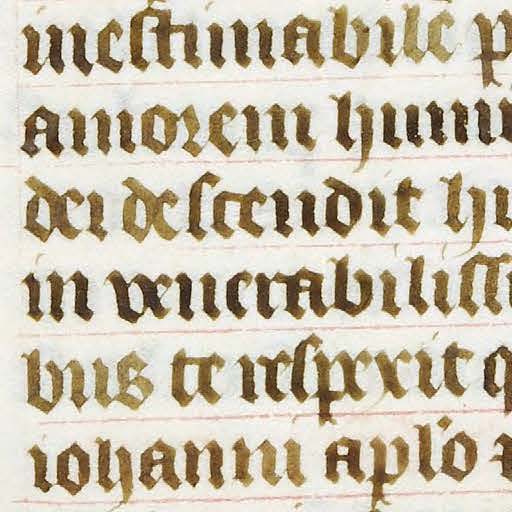 inestimabile
amorem
dei descendit
in venerabilissi
bus te respexit
iohanni aplo